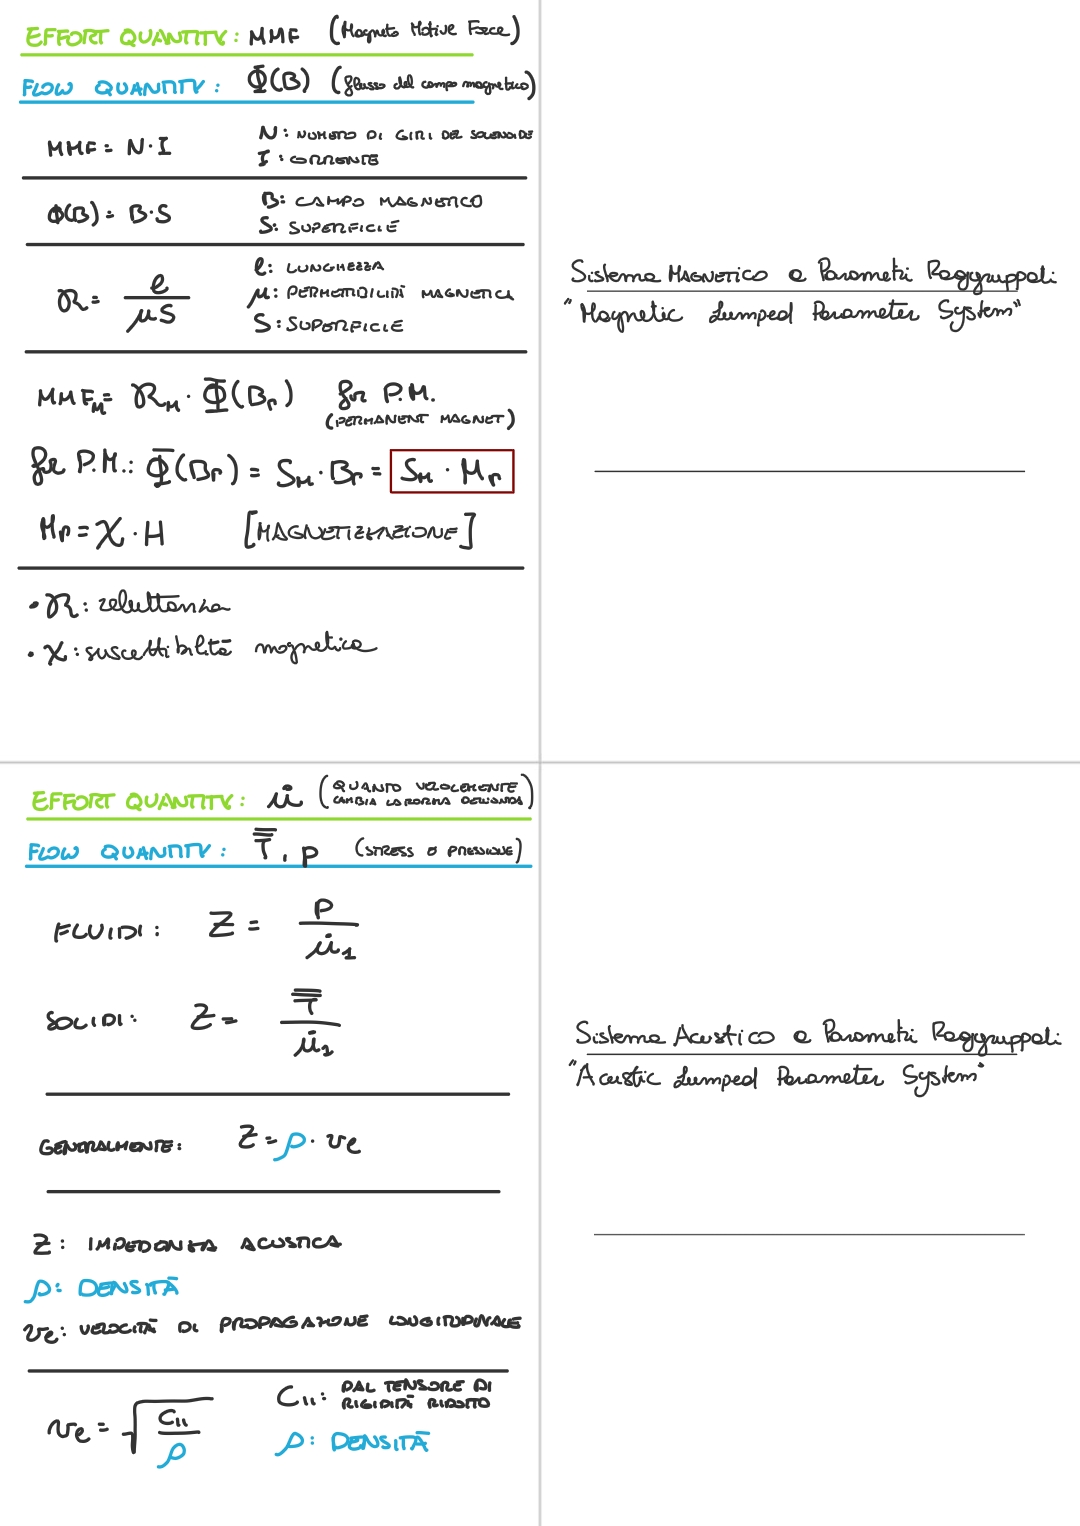 EFFORT QUANTITY: MMF (Magneto Motive Force)
FLOW QUANTITY: Φ(B) (flusso del campo magnetico)
MMF = N·I
N: NUMERO DI GIRI DEL SOLENOIDE
I: CORRENTE
Φ(B) = B·S
B: CAMPO MAGNETICO
S: SUPERFICIE
ℛ = ℓ / μS
ℓ: LUNGHEZZA
μ: PERMEABILITÀ MAGNETICA
S: SUPERFICIE
MMF_M = ℛ_M · Φ(B_r) for P.M.
(PERMANENT MAGNET)
for P.M.: Φ(B_r) = S_M · B_r = S_M · M_r
M_r = χ · H [MAGNETIZZAZIONE]
• ℛ: reluttanza
• χ: suscettibilità magnetica
Sistema MAGNETICO a Parametri Raggruppati
"Magnetic Lumped Parameter System"
EFFORT QUANTITY: u̇ (QUANTO VELOCEMENTE CAMBIA LA FORMA DELL'ONDA)
FLOW QUANTITY: T̿, p (STRESS O PRESSIONE)
FLUIDI: Z = p / u̇₁
SOLIDI: Z = T̿ / u̇₁
GENERALMENTE: Z = ρ · v_ℓ
Z: IMPEDENZA ACUSTICA
ρ: DENSITÀ
v_ℓ: VELOCITÀ DI PROPAGAZIONE LONGITUDINALE
v_ℓ = √(C₁₁ / ρ)
C₁₁: DAL TENSORE DI RIGIDITÀ RIDOTTO
ρ: DENSITÀ
Sistema Acustico a Parametri Raggruppati
"Acustic Lumped Parameter System"